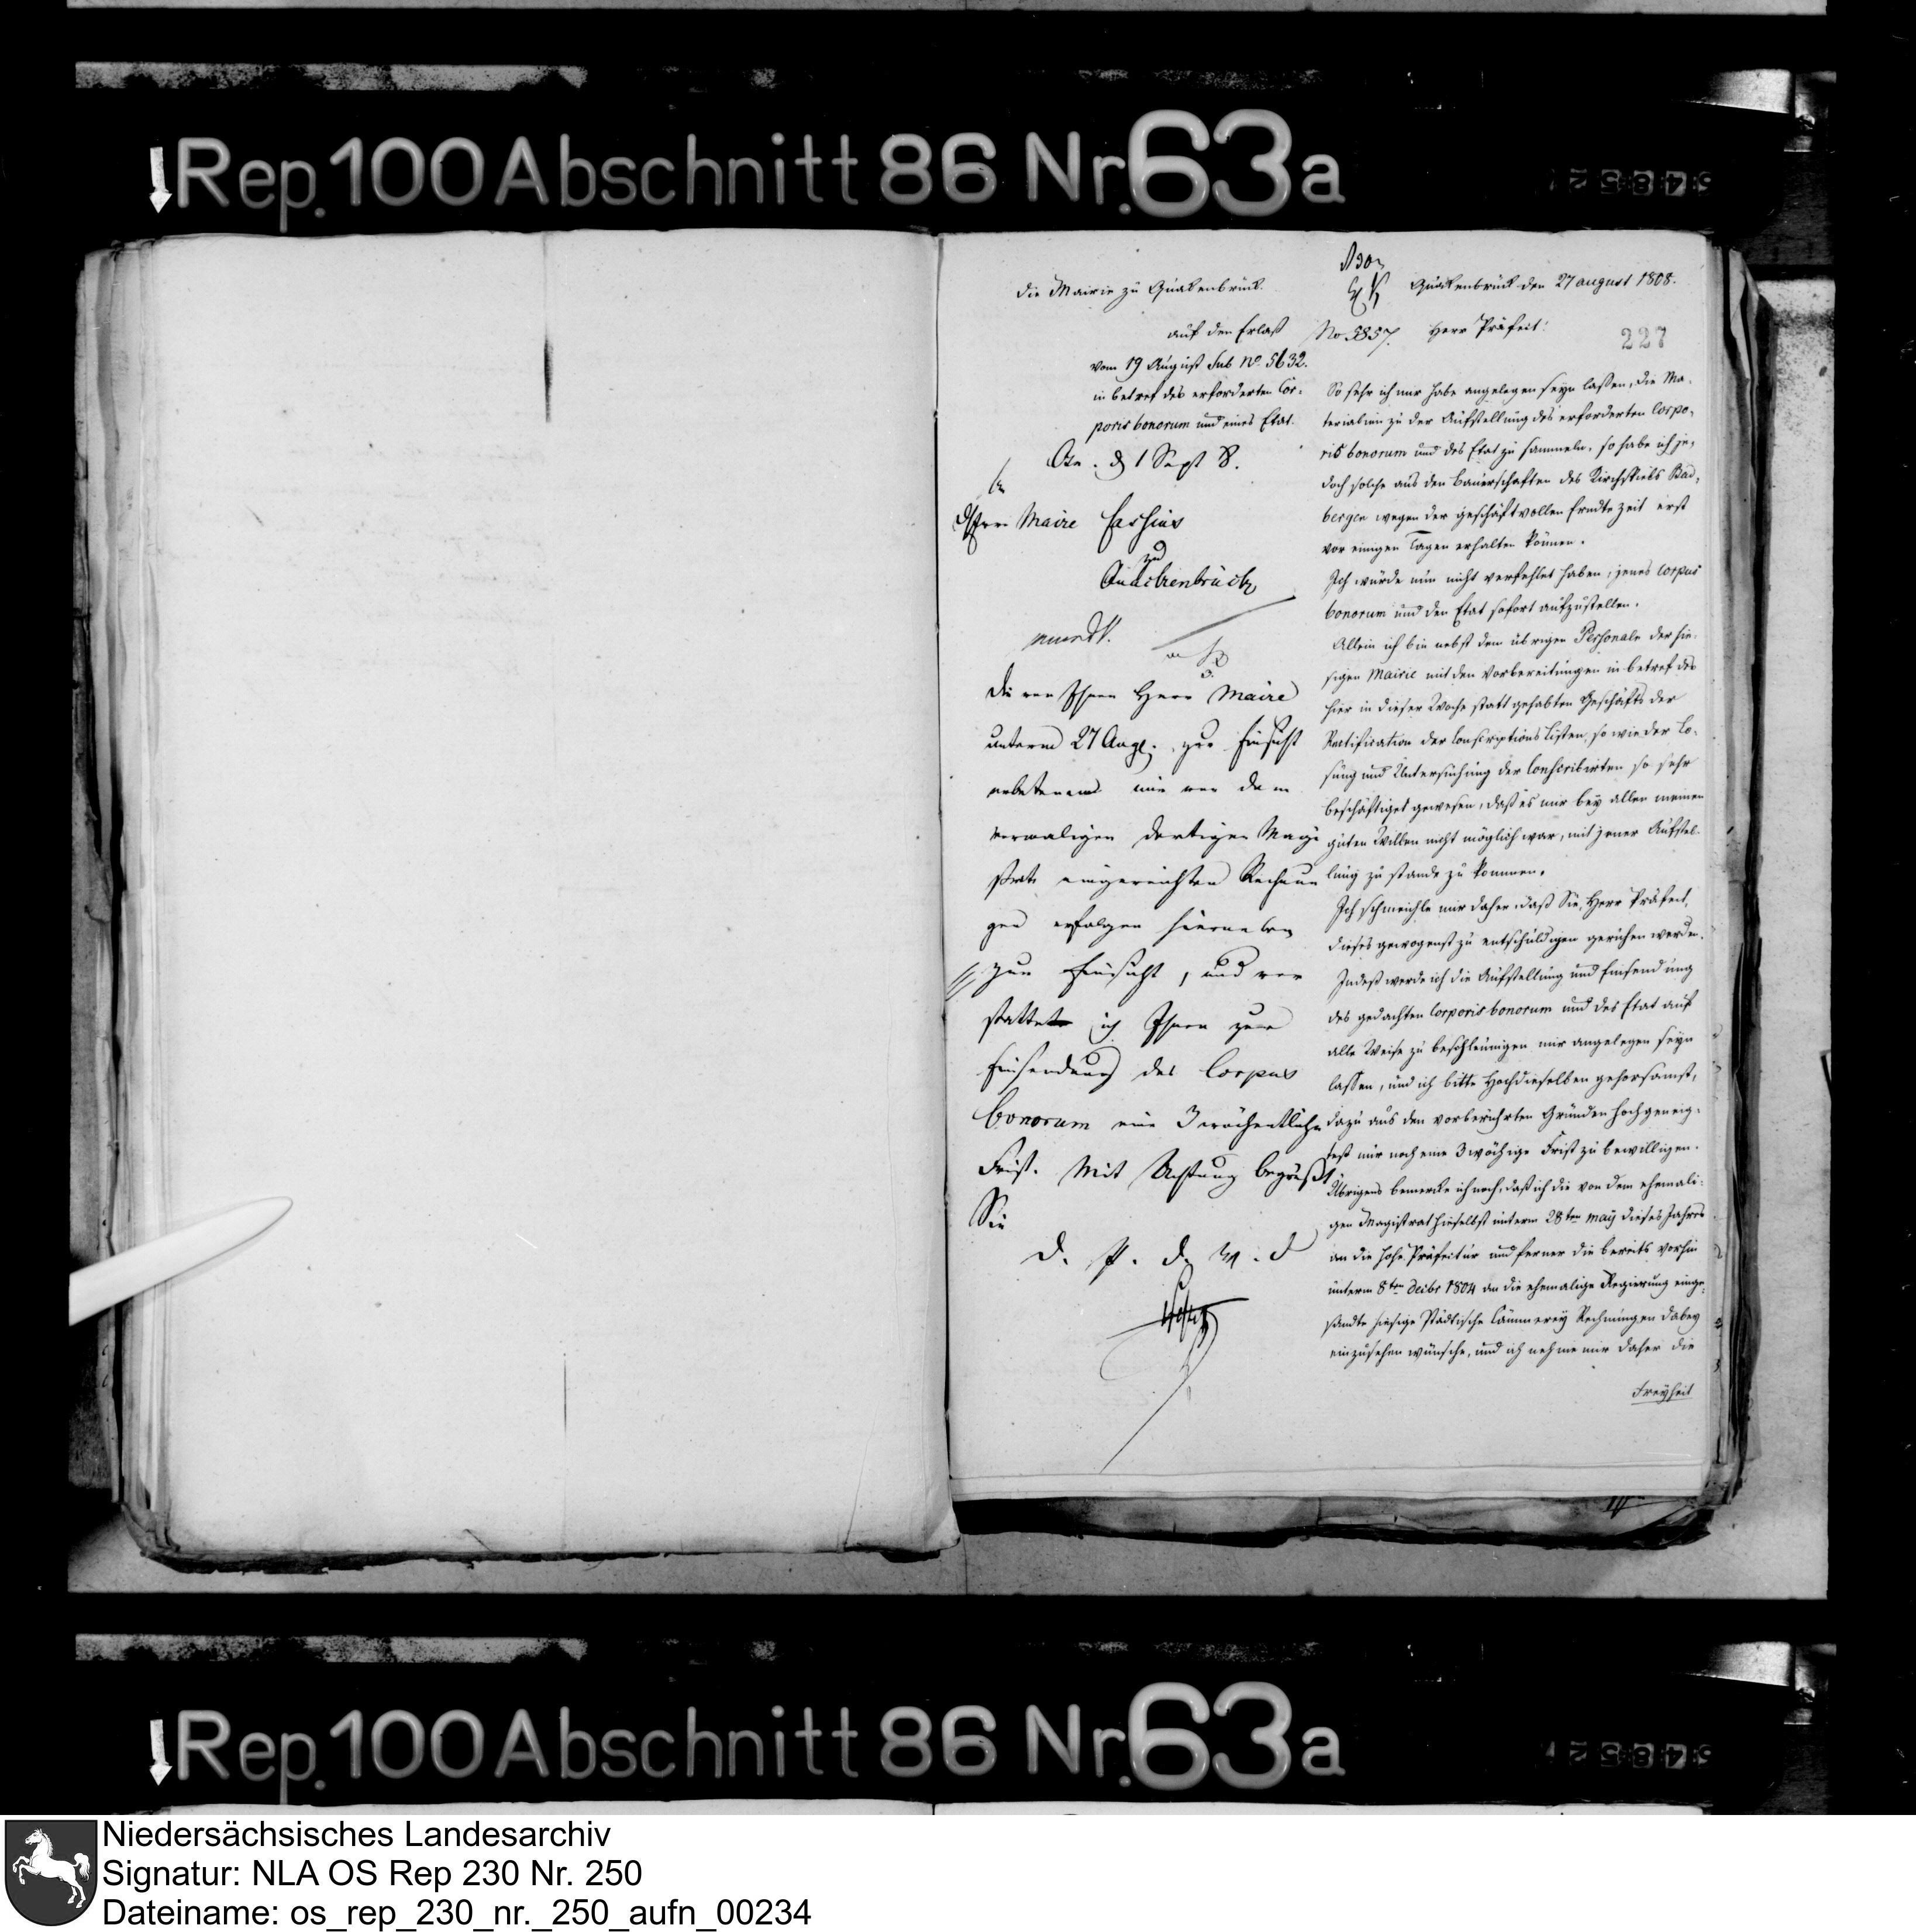 Rep. 100 Abschnitt 86 Nr. 63a
Die Mairie zu Quakenbrück.
auf den Erlaß
vom 19 August sub No. 5632.
in betref des erforderten Cor-
poris bonorum und eines Etat.
Osn. d 1 Sept 8.
Herrn Maire Cassius
zu
Quackenbrück
mundt.
Die von Ihnen Herr Maire
unterm 27 Aug. zur Einsicht
erbetenen mir von dem
vormaligen dortigen Magi
strate eingereichten Rechnun
gen erfolgen hierneben
zur Einsicht, und ver
statte ich Ihnen zur
Einsendung des Corpus
bonorum eine 3 wöchentliche
Frist. Mit Achtung begrüßt
Sie
D. P. d. W. D
Quakenbrück den 27 august 1808.
No 5857. Herr Präfect!
227
So sehr ich mir habe angelegen seyn laßen, die Ma-
terialien zu der Aufstellung des erforderten Corpo-
ris bonorum und des Etat zu sammeln, so habe ich je-
doch solche aus den Bauerschaften des Kirchspiels Bad-
bergen wegen der geschäftvollen Erndtezeit erst
vor einigen Tagen erhalten können.
Ich würde nun nicht verfehlet haben, jenes Corpus
bonorum und den Etat sofort aufzustellen.
Allein ich bin nebst dem übrigen Personale der hie-
sigen Mairie mit den Vorbereitungen in betref des
hier in dieser Woche statt gehabten Geschäfts der
Rectification der Conscriptions Listen, so wie der Lo-
sung und Untersuchung der Conscribirten so sehr
beschäftiget gewesen, daß es mir bey allen meinen
guten Willen nicht möglich war, mit jener Aufstel-
lung zu stande zu kommen.
Ich schmeichle mir daher, daß Sie, Herr Präfect,
dieses gewogenst zu entschuldigen geruhen werden.
Indeß werde ich die Aufstellung und Einsendung
des gedachten Corporis bonorum und des Etat auf
alle Weise zu beschleunigen mir angelegen seyn
lassen, und ich bitte Hochdieselben gehorsamst,
dazu aus den vorberührten Gründen hochgeneig-
test mir noch eine 3 wöchige Frist zu bewilligen.
Übrigens bemerke ich noch, daß ich die von dem ehemali-
gen Magistrat hieselbst unterm 28ten may dieses Jahres
an die hohe Präfectur und ferner die bereits vorhin
unterm 8ten Decbr 1804 an die ehemalige Regierung einge-
sandte hiesige Städtische Cämmerey Rechnungen dabey
einzusehen wünsche, und ich nehme mir daher die
Freyheit
Rep. 100 Abschnitt 86 Nr. 63a
Niedersächsisches Landesarchiv
Signatur: NLA OS Rep 230 Nr. 250
Dateiname: os_rep_230_nr._250_aufn_00234